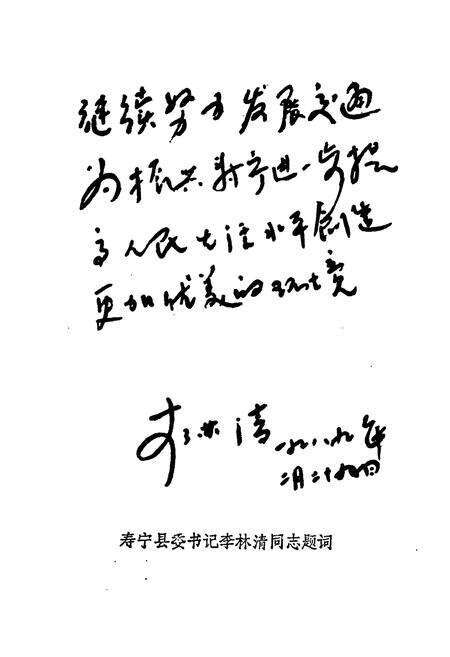 继续努力发展交通
为振兴寿宁进一步提
高人民生活水平创造
更加优美的环境
李林清 一九八九年
二月二十九日
寿宁县委书记李林清同志题词